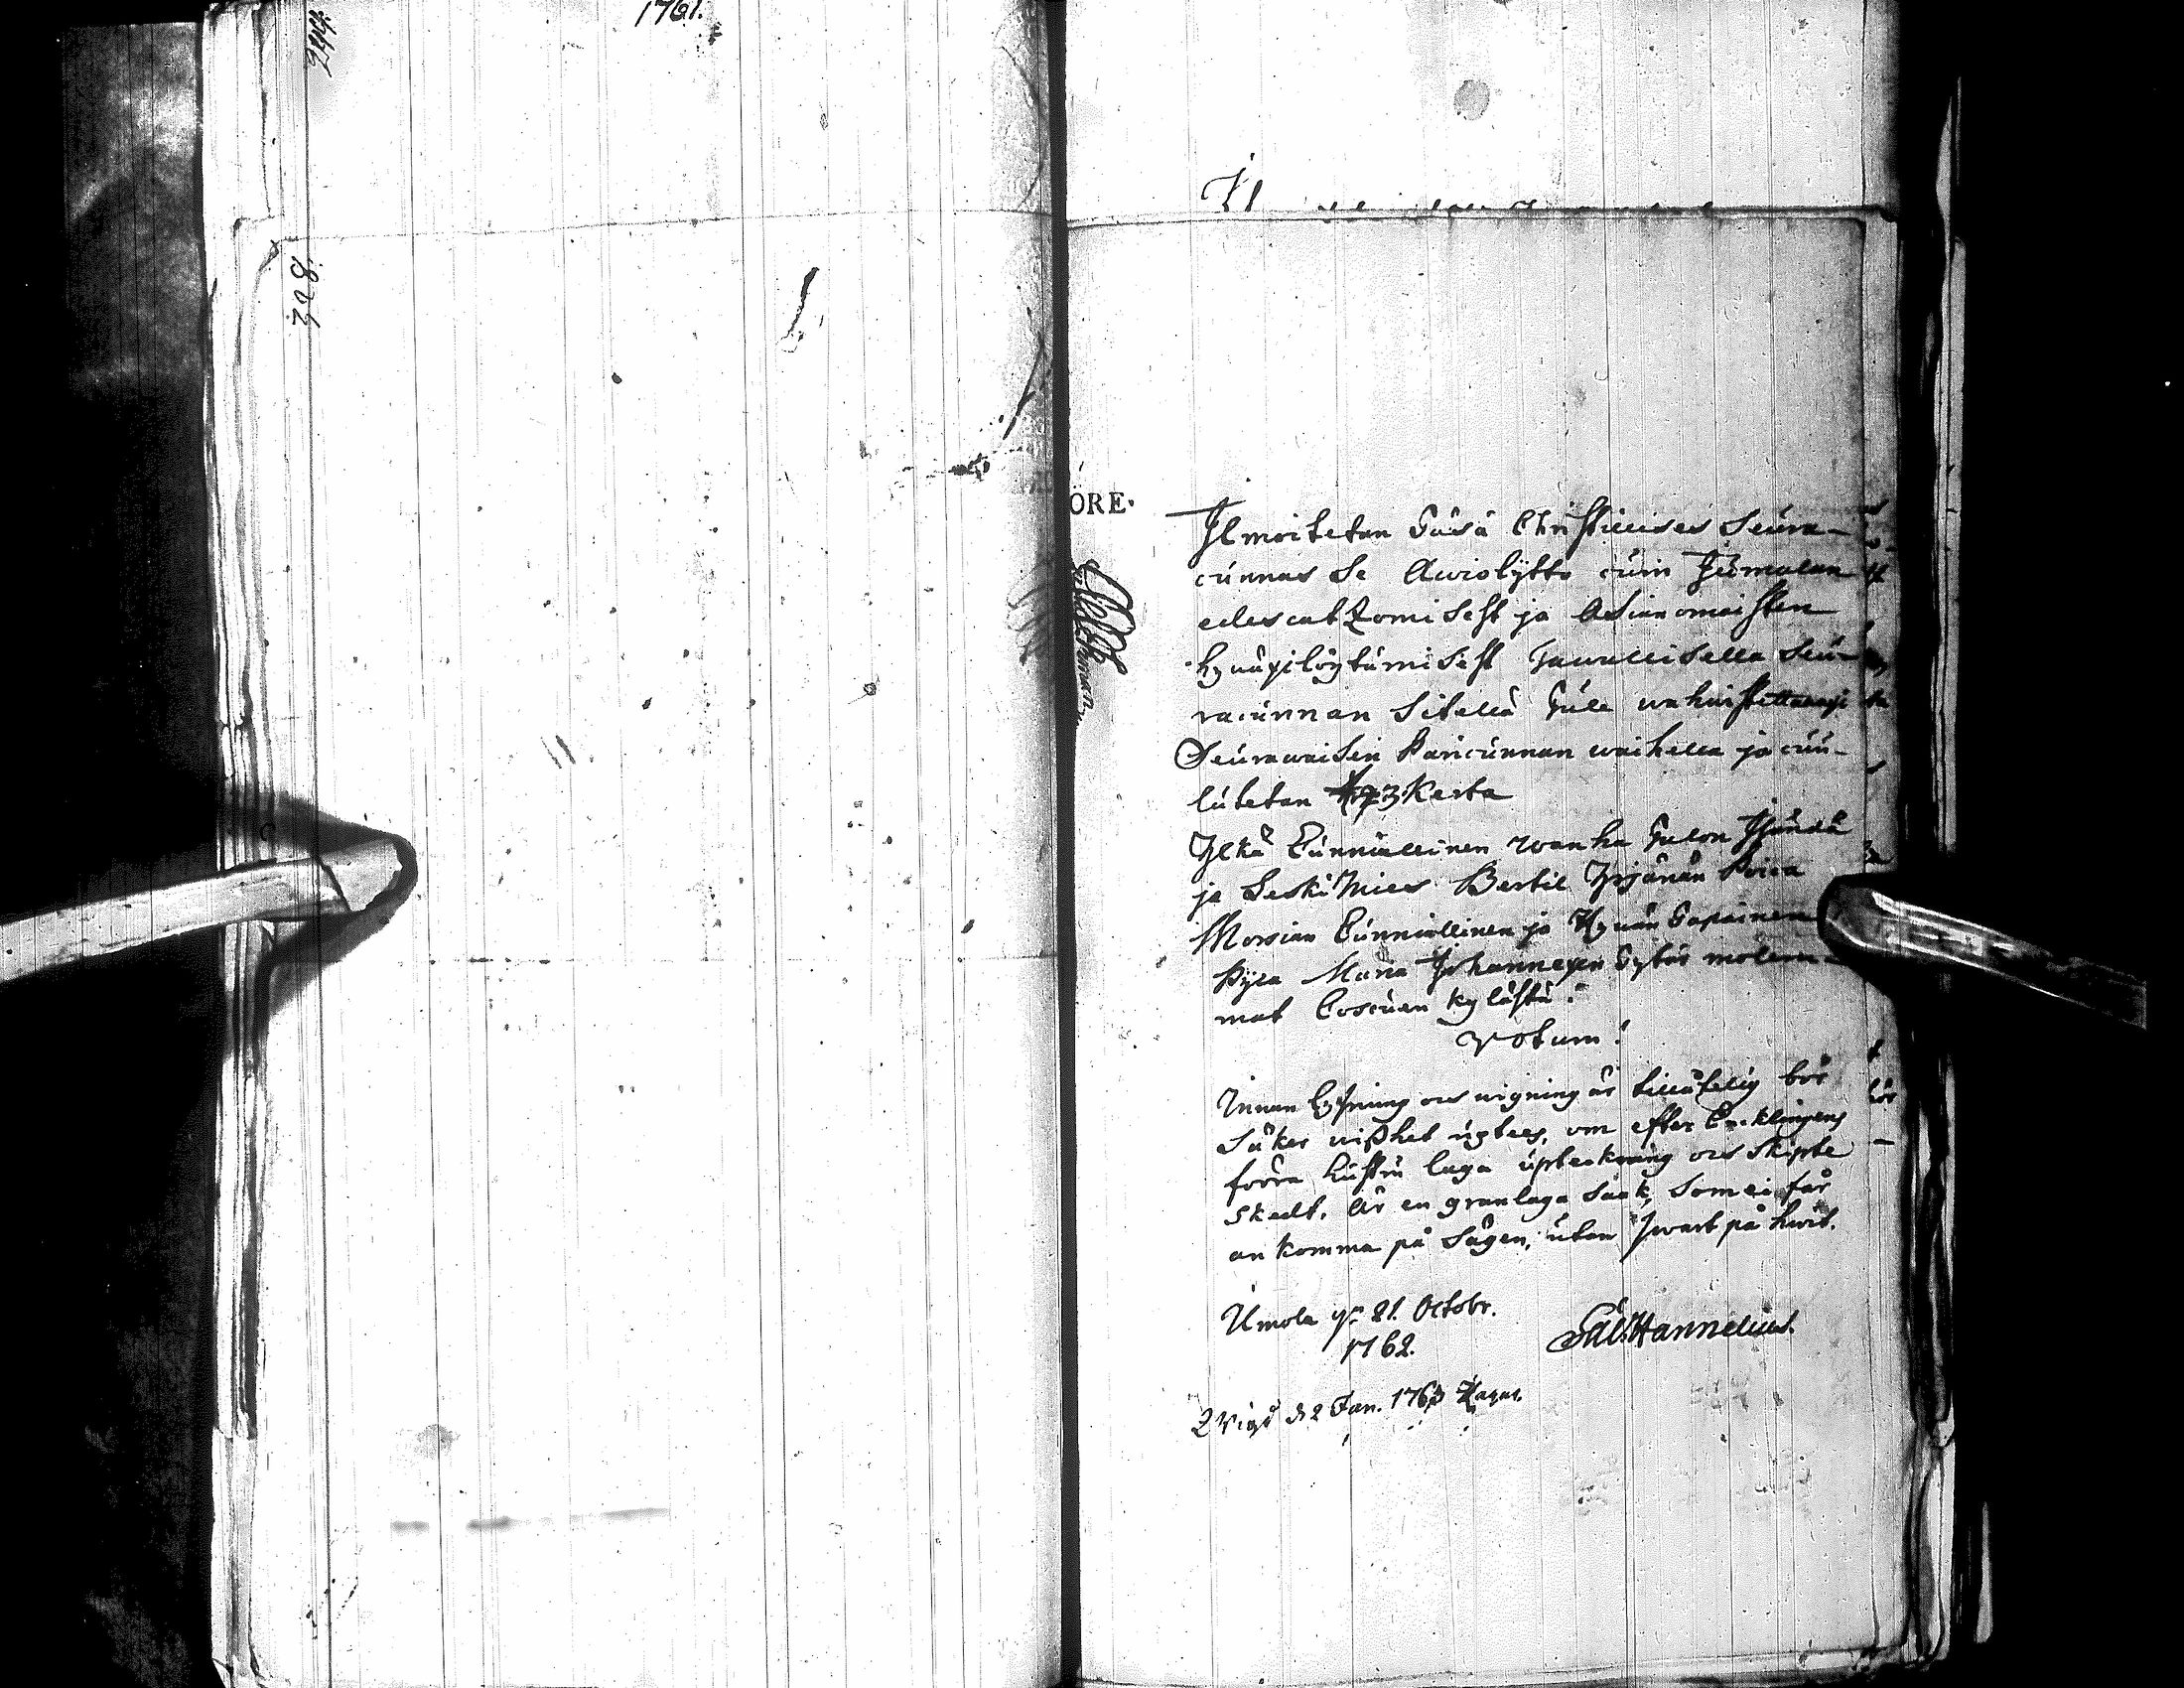 1761.
294.
298.
ÖRE.
Ilmoitetan Täsä Christillises Seura-
cunnas se Awiolijtto cuin Jumalan
edescatzomisest ja Asianomaisten
hywäxilöytämisest Tawallisella Seu-
racunnan sitellä Tule wahwistettawaxi
Seurawaisen Paricunnan waihella ja cuu-
lutetan 3. Kerta
Ylkä Cunniallinen wanha Talon Isändä
ja Leski Mies Bertil Yrjänän Poica
Morsian Cunniallinen ja Hywän Tapainen
Pijca Maria Johannexen Tytär molem-
mat Coscuen kylästä.
Votum!
Innan Lysning och wigning är tillåtelig bör
säker wißhet ugtees, om efter Enklingens
förra hustru laga upteckning och skipte
skedt. Är en granlaga saak, som ei får
ankomma på sägen, utan swart på hwit.
Umola d. 21. Octobr.
1762.
Gab. Hannelius.
Vigd d. 2 Jan. 1763